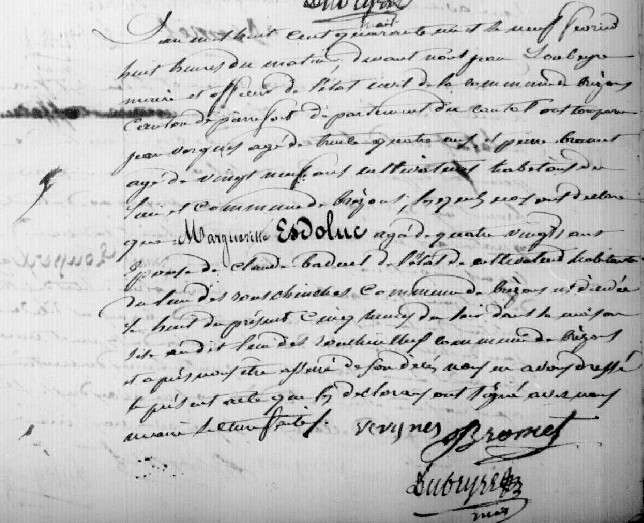 Dubeyre
maire
L'an mil huit cent quarante huit le neuf fevrier
huit heures du matin, devant nous jean Dubeyre
maire et officier de l'état civil de la commune de Brezons
canton de pierrefort département du cantal ont comparu
jean vergnes agé de trente quatre ans, et pierre bromet
agé de vingt neuf ans cultivateurs habitans du
lieu et commune de brezons, lesquels nous ont declaré
que Marguerite Esdoluc agée de quatre vingts ans
épouse de claude de l'état de cultivateur habitante
du lieu des commune de brezons est décédée
le huit du présent cinq heures du soir dans la maison
sise au dit lieu des commune de brezons
et après nous être assuré de son décès, nous en avons dressé
le présent acte que les declarans ont signé avec nous
maire lecture faite.
vergnes Bromet
Dubeyre
maire